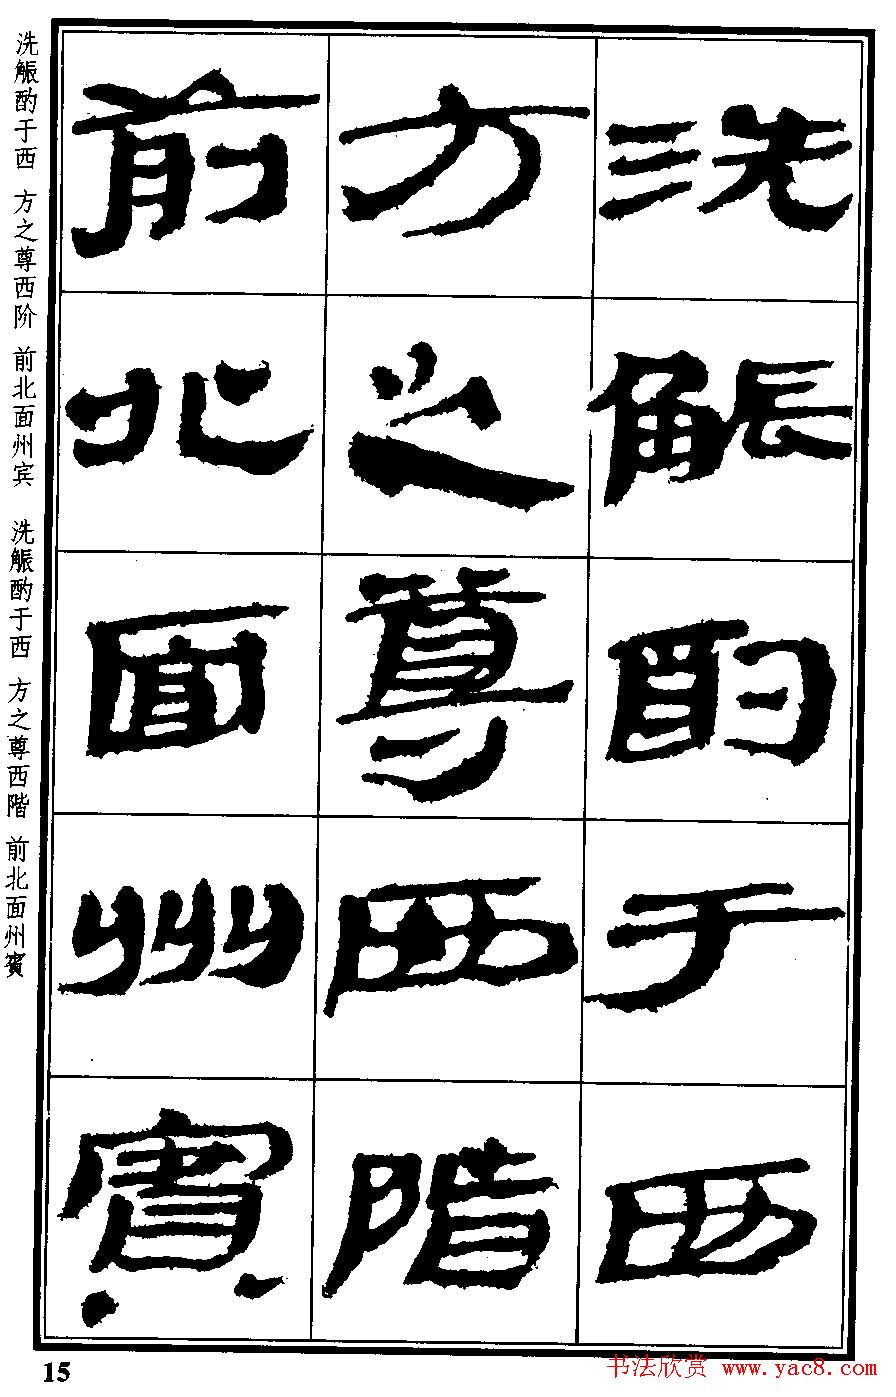 洗觶酌于西
方之尊西階
前北面州賓
洗觶酌于西 方之尊西阶 前北面州宾 洗觶酌于西 方之尊西階 前北面州賓
15
书法欣赏 www.yac8.com